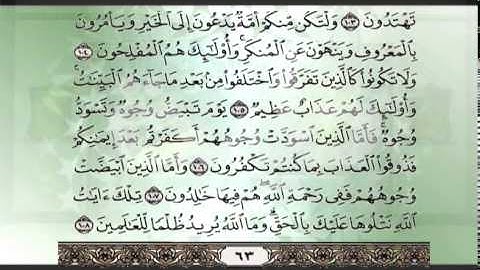 تَهْتَدُونَ ١٠٣ وَلْتَكُن مِّنكُمْ أُمَّةٌ يَدْعُونَ إِلَى الْخَيْرِ وَيَأْمُرُونَ
بِالْمَعْرُوفِ وَيَنْهَوْنَ عَنِ الْمُنكَرِ وَأُولَٰئِكَ هُمُ الْمُفْلِحُونَ ١٠٤
وَلَا تَكُونُوا كَالَّذِينَ تَفَرَّقُوا وَاخْتَلَفُوا مِن بَعْدِ مَا جَاءَهُمُ الْبَيِّنَاتُ
وَأُولَٰئِكَ لَهُمْ عَذَابٌ عَظِيمٌ ١٠٥ يَوْمَ تَبْيَضُّ وُجُوهٌ وَتَسْوَدُّ
وُجُوهٌ فَأَمَّا الَّذِينَ اسْوَدَّتْ وُجُوهُهُمْ أَكَفَرْتُم بَعْدَ إِيمَانِكُمْ
فَذُوقُوا الْعَذَابَ بِمَا كُنتُمْ تَكْفُرُونَ ١٠٦ وَأَمَّا الَّذِينَ ابْيَضَّتْ
وُجُوهُهُمْ فَفِي رَحْمَةِ اللَّهِ هُمْ فِيهَا خَالِدُونَ ١٠٧ تِلْكَ آيَاتُ
اللَّهِ نَتْلُوهَا عَلَيْكَ بِالْحَقِّ وَمَا اللَّهُ يُرِيدُ ظُلْمًا لِّلْعَالَمِينَ ١٠٨
٦٣